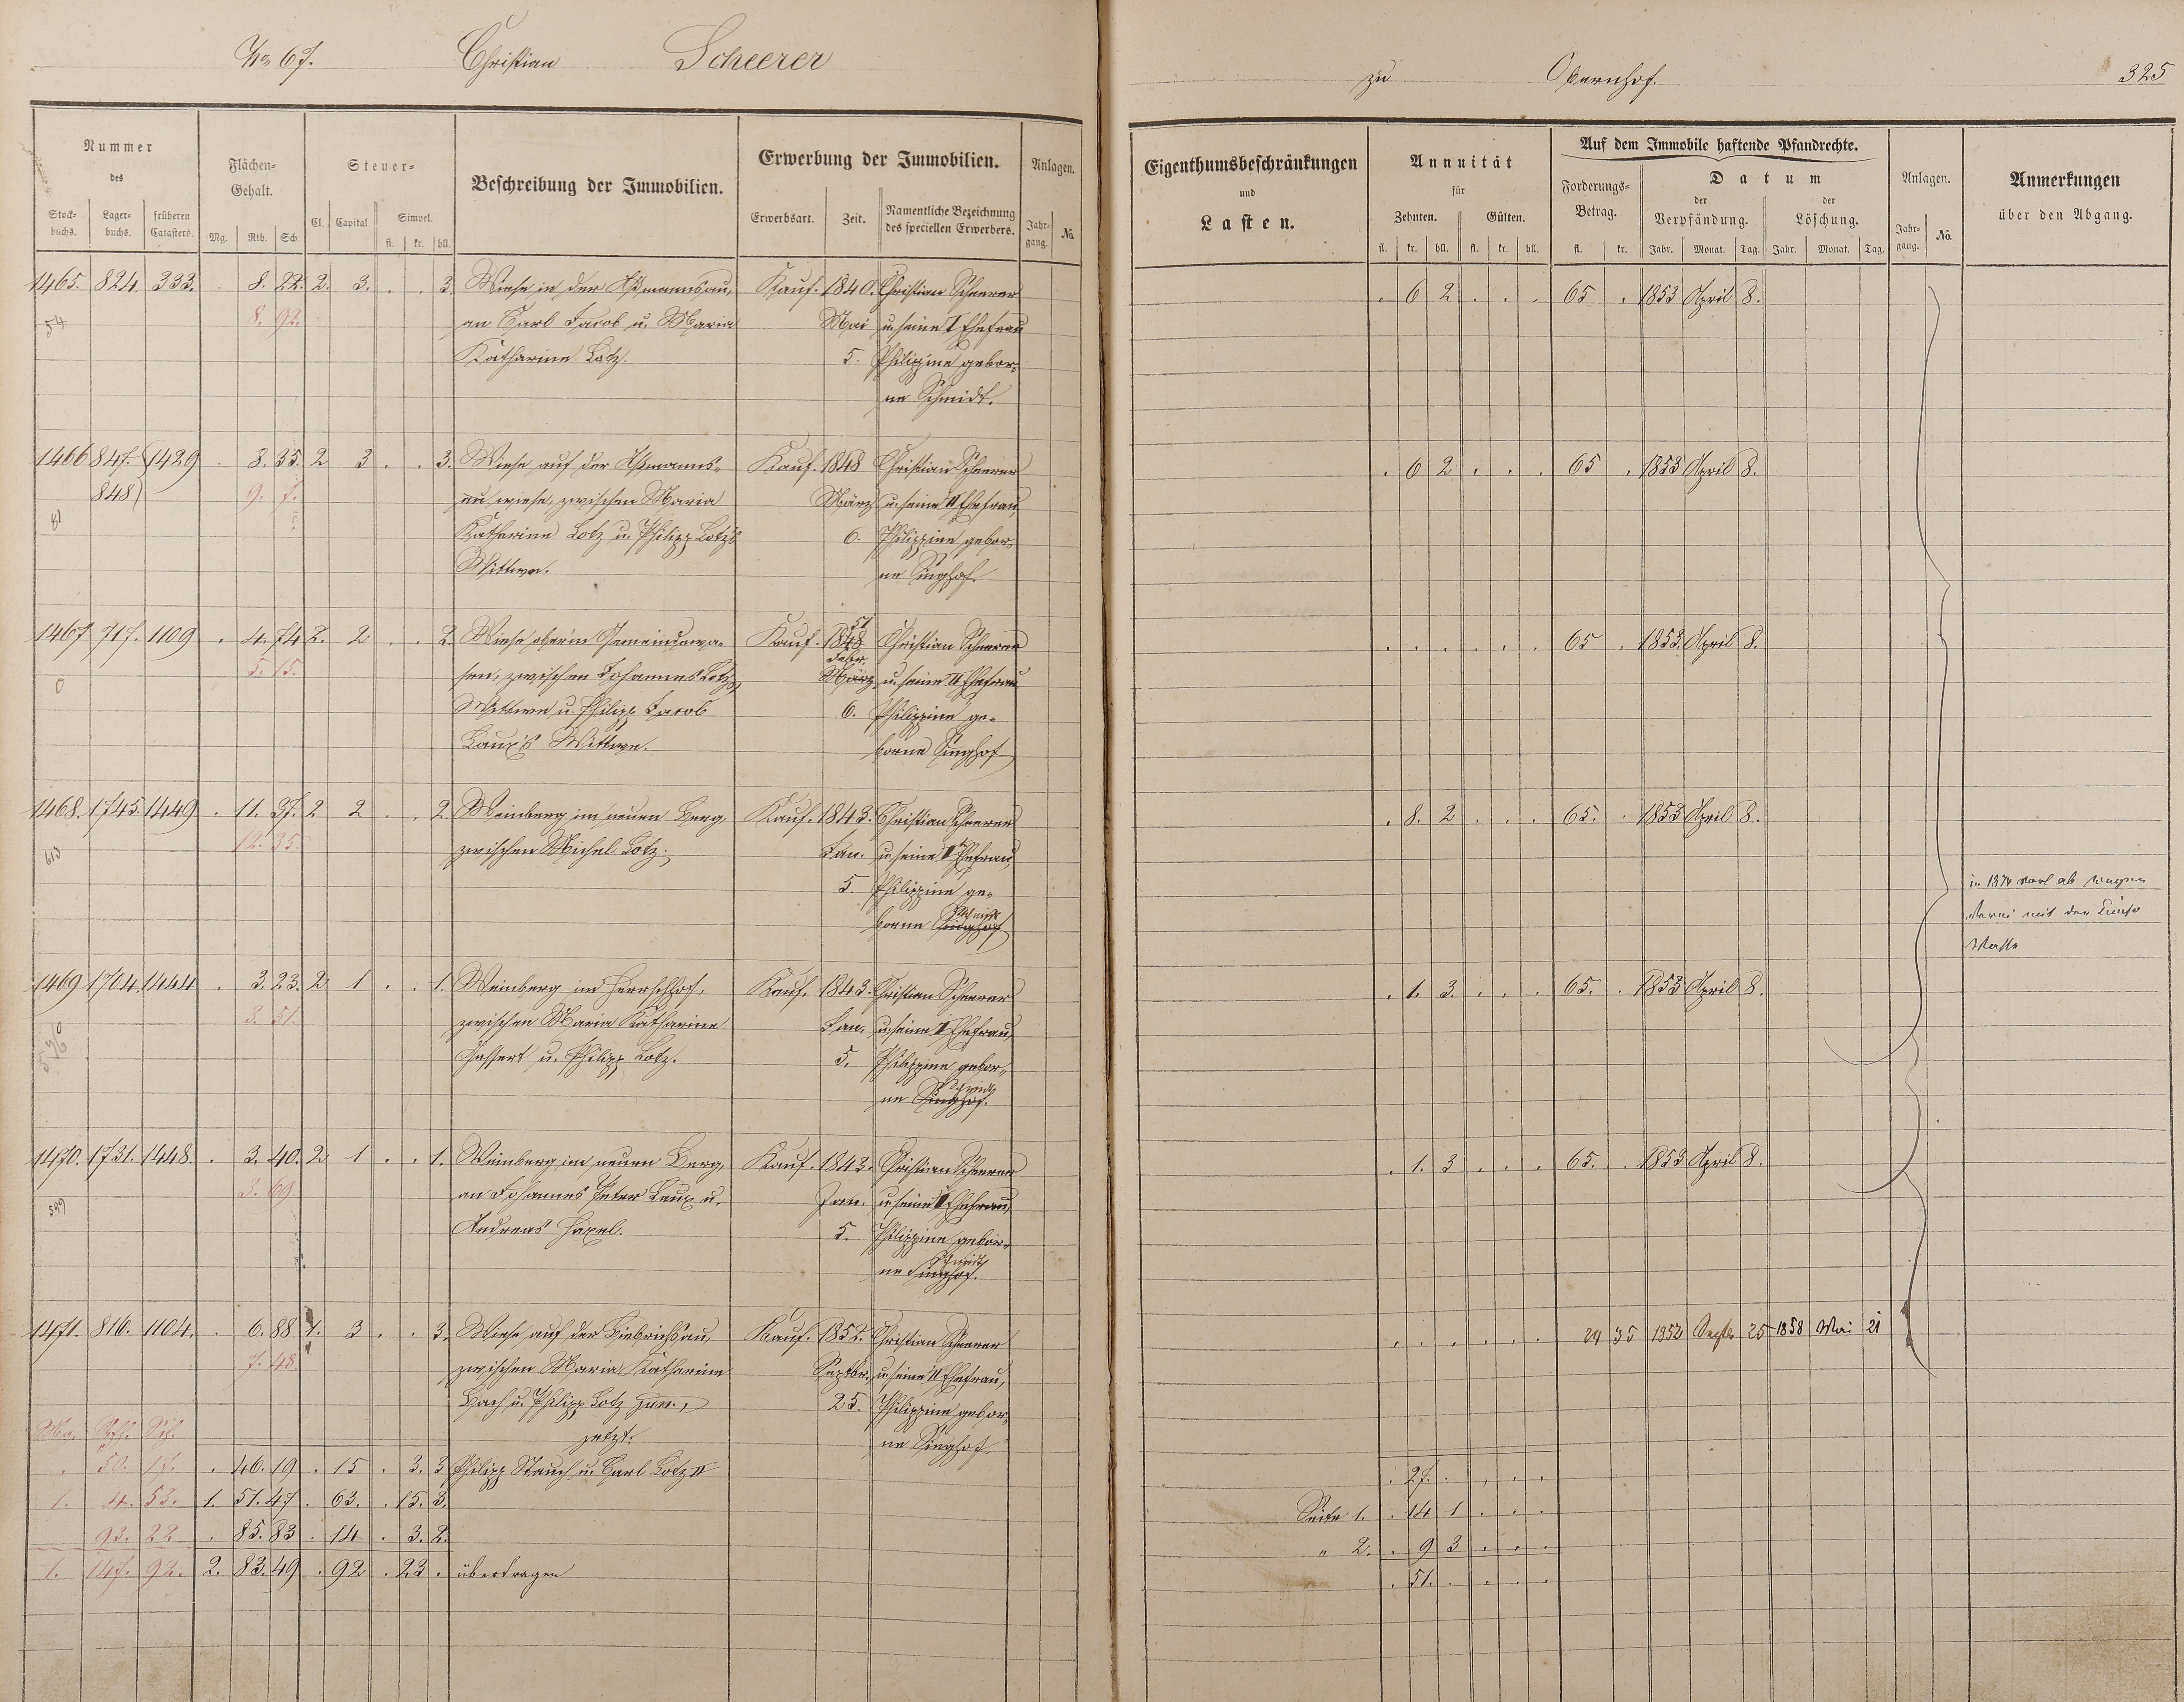 No 67. Christian Scheerer
zu Obernhof. 325
Nummer des
Stockbuchs. Lagerbuchs. früheren Catasters.
Flächen-Gehalt.
Mg. Rth. Sch.
Steuer-
Cl. Capital. Simpel.
fl. kr. hll.
Beschreibung der Immobilien.
Erwerbung der Immobilien.
Erwerbsart. Zeit. Namentliche Bezeichnung des speciellen Erwerbers.
Anlagen.
Jahrgang. No.
Eigenthumsbeschränkungen
und
Lasten.
Annuität
für
Zehnten. Gülten.
fl. kr. hll. fl. kr. hll.
Auf dem Immobile haftende Pfandrechte.
Forderungs-Betrag.
fl. kr.
Datum
der Verpfändung. der Löschung.
Jahr. Monat. Tag. Jahr. Monat. Tag.
Anlagen.
Jahrgang. No.
Anmerkungen
über den Abgang.
1465. 824. 333. . 8. 22. 2. 3. . . 3. Wiese in der Aßmannsau, Kauf. 1840. Christian Scheerer . 6 2 . . . 65 . 1853 April 8.
54 8. 92. an Carl Jacob u. Maria Mai u. seine I Ehefrau
Katharine Lotz. 5. Philippine gebor-
ne Schmidt.
1466 847. 1429 . 8. 35. 2 3 . . 3. Wiese auf der Aßmanns- Kauf. 1848 Christian Scheerer . 6 2 . . . 65 . 1853 April 8.
848 9. 7. au wiese, zwischen Maria März u. seine II Ehefrau,
81 Katharine Lotz u. Philipp Lotz's 6. Philippine gebor-
Wittwe. ne Singhof.
51
1467 717. 1109 . 4. 74 2. 2 . . 2 Wiese oberm Gemeindewa- Kauf. 1848 Christian Scheerer . . . . . . 65 . 1853 April 8.
Febr.
5. 15. sen, zwischen Johannes Lotz März u. seine II Ehefrau
0 Wittwe u. Philipp Jacob 6. Philippine ge-
Laux's Wittwe. borne Singhof
1468. 1745 1449 . 11. 37. 2 2 . . 2 Weinberg im neuen Berg, Kauf. 1843. Christian Scheerer . 8. 2 . . . 65. . 1853 April 8.
613 12. 35. zwischen Michel Lotz. Jan. u. seine I Ehefrau,
5. Philippine ge-
Schmidt
borne Singhof
in 1874
mit der
1469 1704. 1444 . 3. 23. 2 1 . . 1. Weinberg im Herrschhof, Kauf. 1843. Christian Scheerer . 1. 3. . . . 65. . 1853 April 8.
3. 51. zwischen Maria Katharine Jan. u. seine I Ehefrau,
576 u. Philipp Lotz. 5. Philippine gebor-
Schmidt
ne Singhof.
1470. 1731. 1448. . 3. 40. 2 1 . . 1. Weinberg im neuen Berg, Kauf. 1843. Christian Scheerer . 1. 3 . . . 65. . 1853 April 8.
599 3. 69. an Johannes Peter Laux u. Jan. u. seine I Ehefrau,
Andreas Häxel. 5. Philippine gebor-
Schmidt
ne Singhof.
1471. 816. 1104. . 6. 88 1. 3 . . 3. Wiese auf der Biebrichsau, Kauf. 1852. Christian Scheerer . . . . . . 24 35 1852 Septbr 25 1858 Mai 21
7. 48. zwischen Maria Katharine Septbr. u. seine II Ehefrau,
Bach u. Philipp Lotz jun., 25. Philippine gebor-
Mg. Rth. Sch. jetzt: ne Singhof
. 50. 17. . 46. 19 . 15 . 3. 3 Philipp Stauch u. Carl Lotz II . 27. . . . .
1. 4. 53. 1. 51. 47 . 63. . 15. 3. Seite 1. . 14 1 . . .
93. 22 . 85. 83 . 14 . 3. 2. " 2. . 9 3 . . .
1. 147. 92. 2. 83. 49 . 92 . 23 . übertragen . 51. . . . .